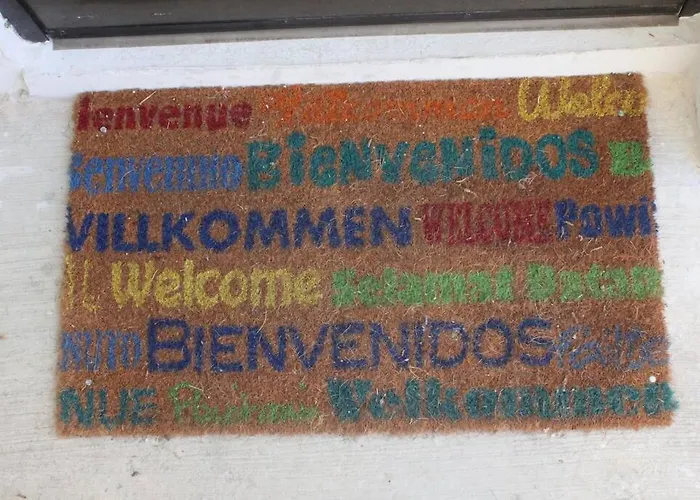 Bienvenue Welco
Benvenuto BiENVENiDOS
VILLKOMMEN WELCOME Powit
L Welcome Selamat Datan
NUTO BIENVENIDOS
NUE Welkommen